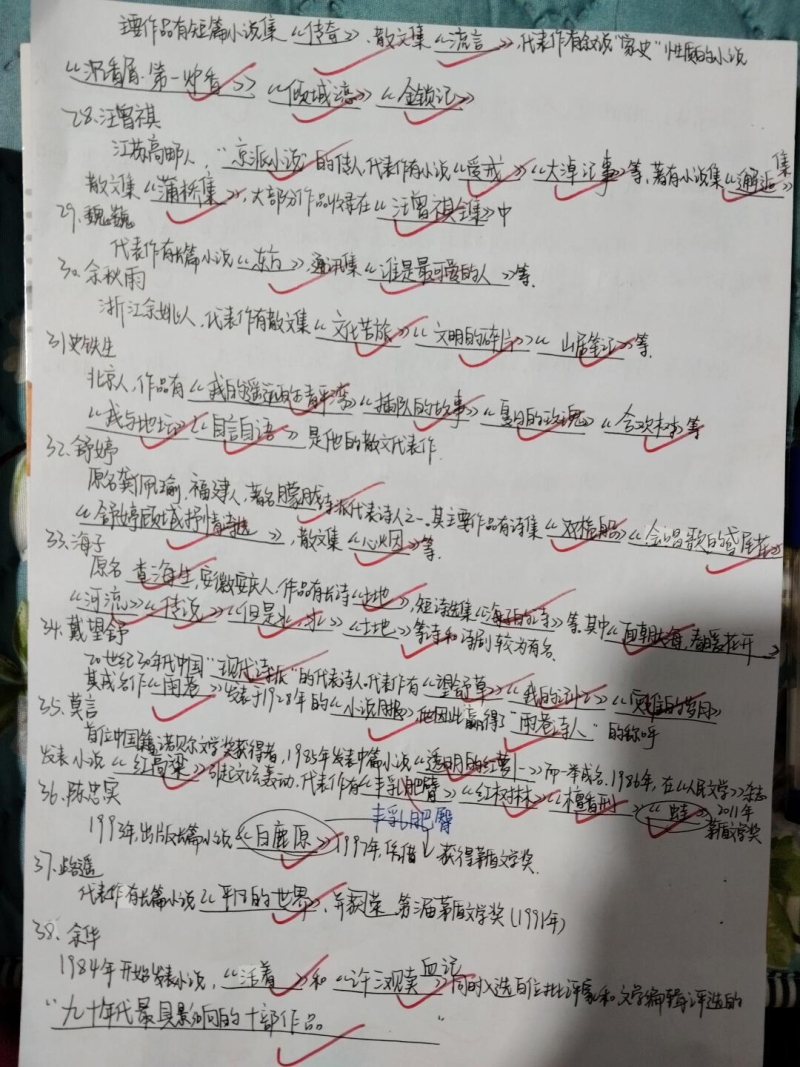 主要作品有短篇小说集《传奇》、散文集《流言》,代表作有叙说"家史"性质的小说
《沉香屑·第一炉香》《倾城之恋》《金锁记》
28.汪曾祺
江苏高邮人,"京派小说"的传人,代表作有小说《受戒》《大淖记事》等,著有小说集《邂逅集》
散文集《蒲桥集》,大部分作品收录在《汪曾祺全集》中
29.魏巍
代表作有长篇小说《东方》,通讯集《谁是最可爱的人》等.
30.余秋雨
浙江余姚人,代表作有散文集《文化苦旅》《文明的碎片》《山居笔记》等.
31史铁生
北京人,作品有《我的遥远的清平湾》《插队的故事》《夏日的玫瑰》《合欢树》等
《我与地坛》《自言自语》是他的散文代表作.
32.舒婷
原名龚佩瑜,福建人,著名朦胧诗派代表诗人之一.其主要作品有诗集《双桅船》《会唱歌的鸢尾花》
《舒婷顾城抒情诗选》,散文集《心烟》等.
33.海子
原名查海生,安徽安庆人.作品有长诗《土地》,短诗选集《海子的诗》等.其中《面朝大海,春暖花开》
《河流》《传说》《但是水,水》《土地》等诗和诗剧较为有名.
34.戴望舒
20世纪30年代中国"现代诗派"的代表诗人.代表作有《望舒草》《我的记忆》《灾难的岁月》
其成名作《雨巷》发表于1928年的《小说月报》,他因此赢得了"雨巷诗人"的称呼
35.莫言
首位中国籍诺贝尔文学奖获得者,1985年发表中篇小说《透明的红萝卜》而一举成名.1986年,在《人民文学》杂志
发表小说《红高粱》引起文坛轰动.代表作有《丰乳肥臀》《红树林》《檀香刑》《蛙》2011年茅盾文学奖
丰乳肥臀
36.陈忠实
1993年,出版长篇小说《白鹿原》1997年,凭借↓获得茅盾文学奖.
37.路遥
代表作有长篇小说《平凡的世界》,并获第三届茅盾文学奖(1991年)
38.余华
1984年开始发表小说,《活着》和《许三观卖血记》同时入选百位批评家和文学编辑评选的
"九十年代最具影响的十部作品"